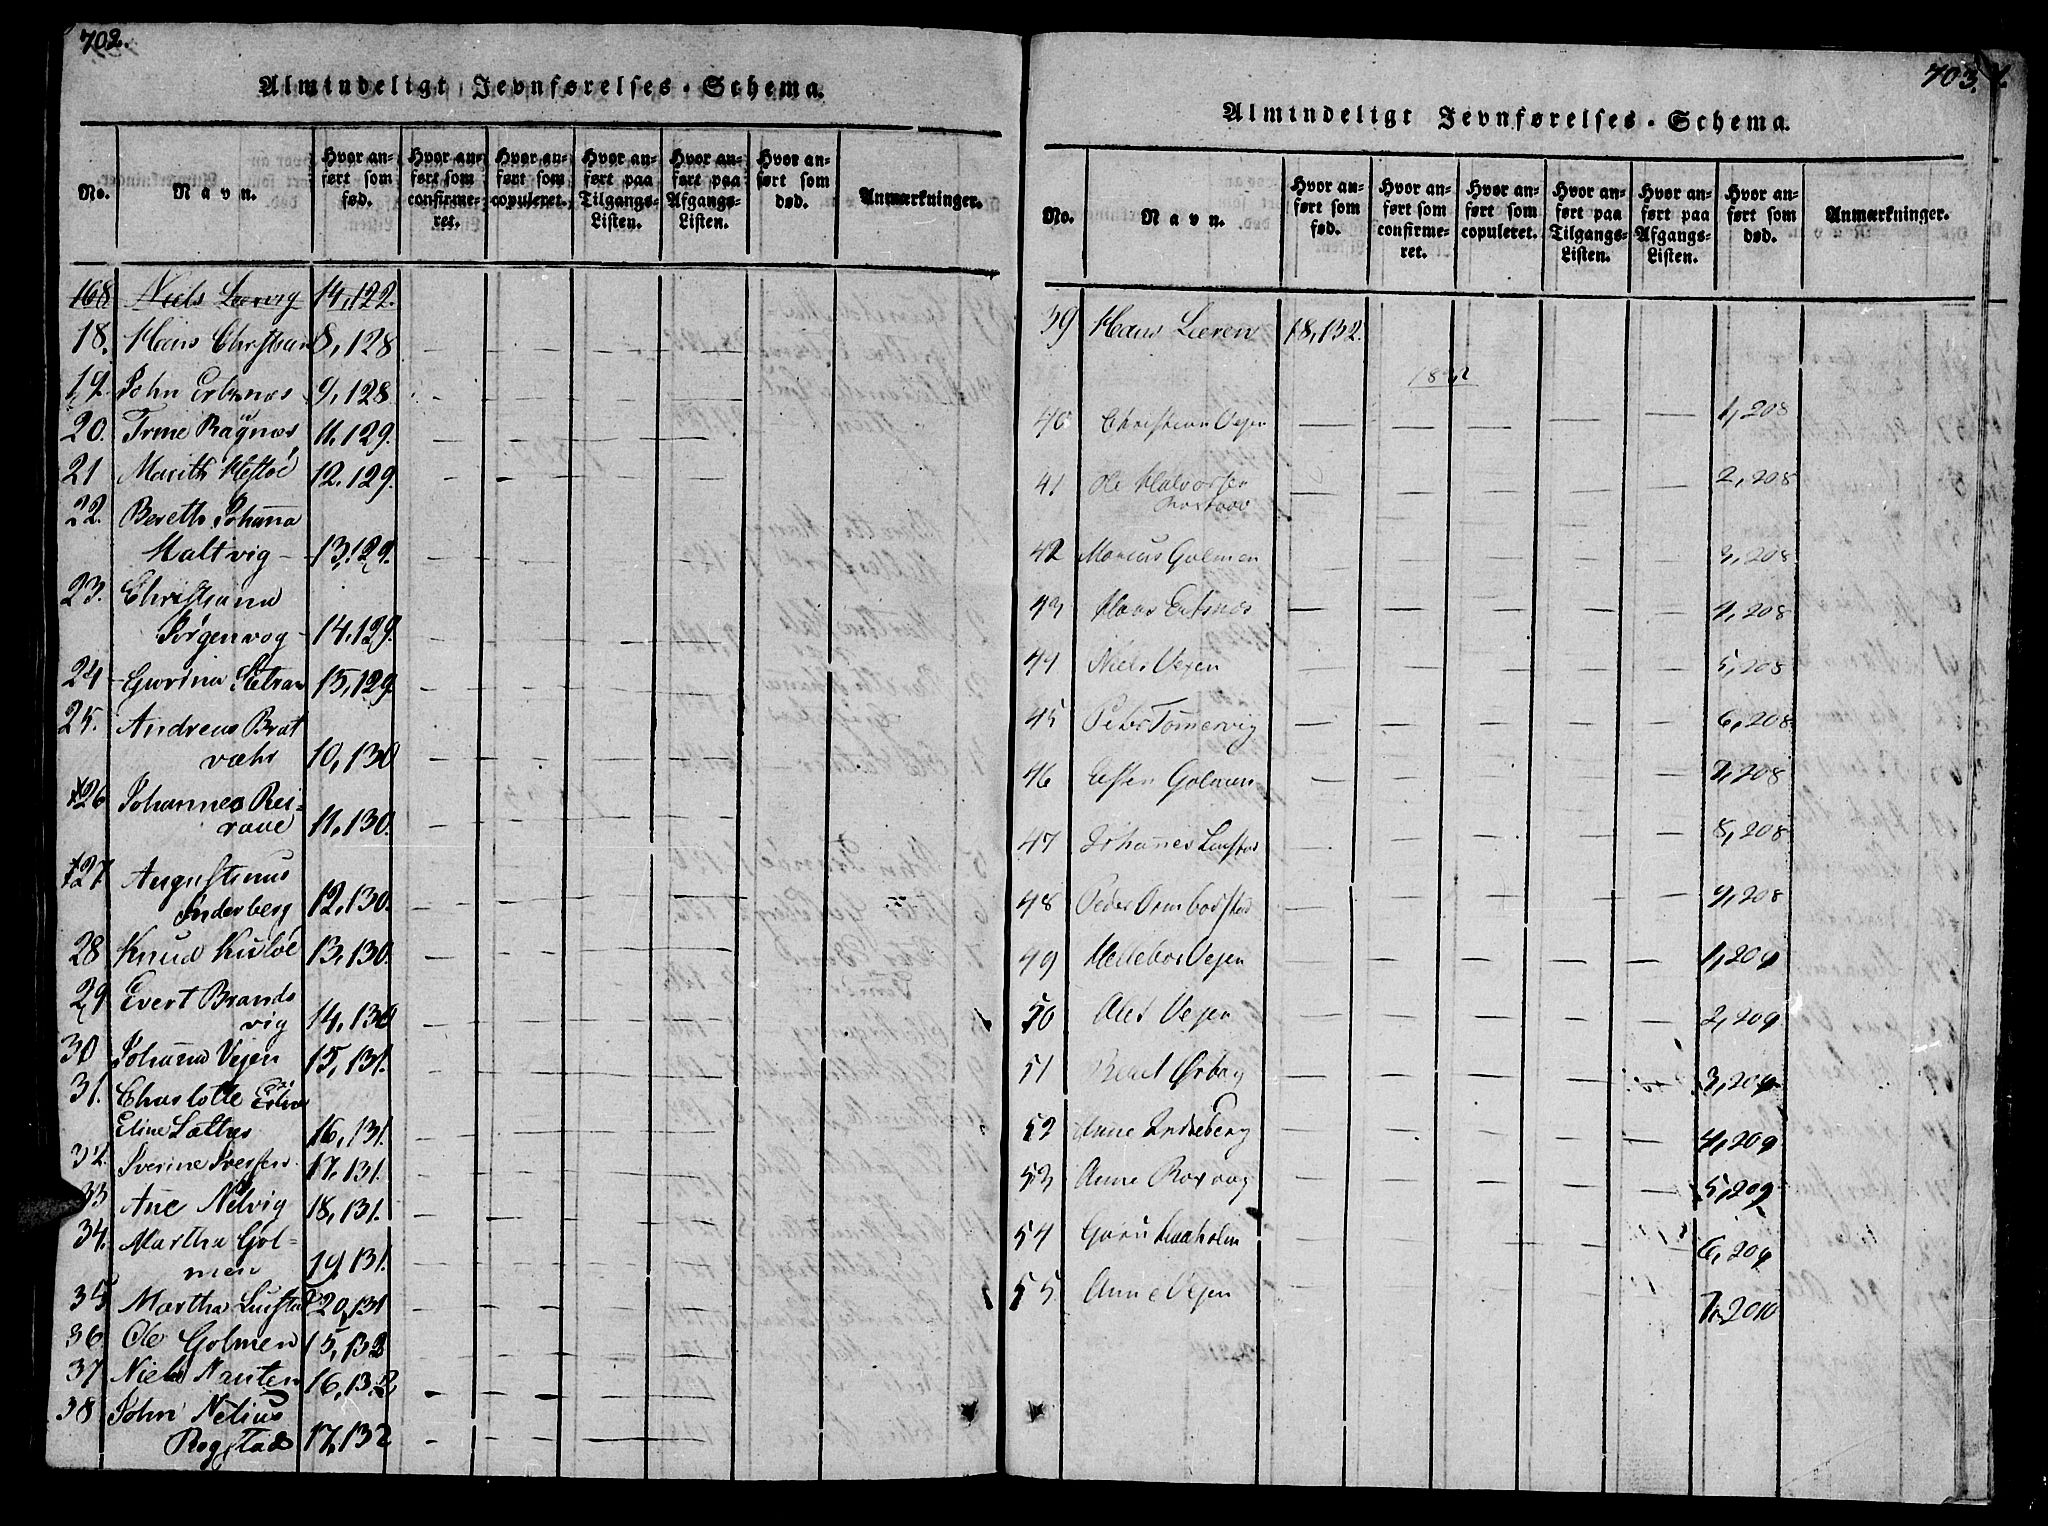 702.
Almindeligt Jevnførelses-Schema.
No.
Navn.
Hvor an-
ført som
fød.
Hvor an-
ført som
confirme-
ret.
Hvor an-
ført som
copuleret.
Hvor an-
ført paa
Tilgangs-
Listen.
Hvor an-
ført paa
Afgangs-
Listen.
Hvor an-
ført som
død.
Anmærkninger.
168 Niels Lervig 14,122.
18. Hans Christian 8,128
19. John Ertsnæs 9,128
20. Trine Ragnæs 11,129.
21 Marith Hestøe 12,129.
22. Bereth Johana
Maltvig 13,129.
23. Christiana
Sørgenvog 14,129.
24 Gurina 15,129
25. Andreas Brat
væhr 10,130
26 Johannes Rei-
11,130.
27. Augustinus
Inderberg 12,130.
28 Knud 13,130.
29 Evert Brands
vig 14,130
30 Johanna Vejen 15,131.
31. Charlotte
Eline 16,131.
32. Sverine 17,131.
33 Ane Nelvig 18,131.
34. Martha Gol-
men 19,131.
35 Martha Lustad 20,131
36. Ole Golmen 15,132
37 Niels 16,132
38 John Nelius
Rogstad 17,132
703.
Almindeligt Jevnførelses-Schema.
No.
Navn.
Hvor an-
ført som
fød.
Hvor an-
ført som
confirme-
ret.
Hvor an-
ført som
copuleret.
Hvor an-
ført paa
Tilgangs-
Listen.
Hvor an-
ført paa
Afgangs-
Listen.
Hvor an-
ført som
død.
Anmærkninger.
39 Hans Leren 18,132.
40 Christian Vejen 1,208
41 Ole Halvorsen
2,208
42 Marcus Golmen 3,208
43 Hans Ertsnæs 4,208
44 Niels Vejen 5,208
45 Peter Tømervig 6,208
46 Esten Golmen 7,208
47 Johannes Lustad 8,208
48 Peder 9,208
49 Vejen 1,209
50 Vejen 2,209
51 3,209
52 Anne Inderberg 4,209
53 Anne Roxvog 5,209
54 6,209
55. Anne Vejen 7,2010